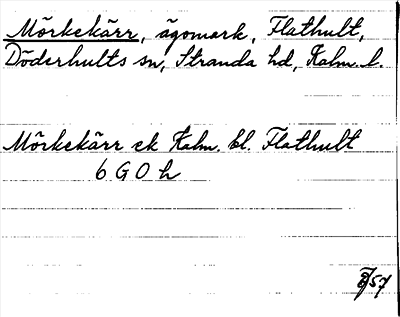 Mörkekärr, ägomark, Flathult,
Döderhults sn, Stranda hd, Kalm. l.
Mörkekärr ek Kalm. bl. Flathult
6 G O h
57